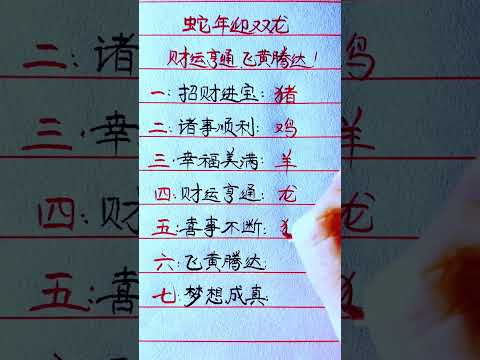 蛇年迎双龙
财运亨通飞黄腾达！
一：招财进宝：猪
二：诸事顺利：鸡
三：幸福美满：羊
四：财运亨通：龙
五：喜事不断：
六：飞黄腾达：
七：梦想成真：